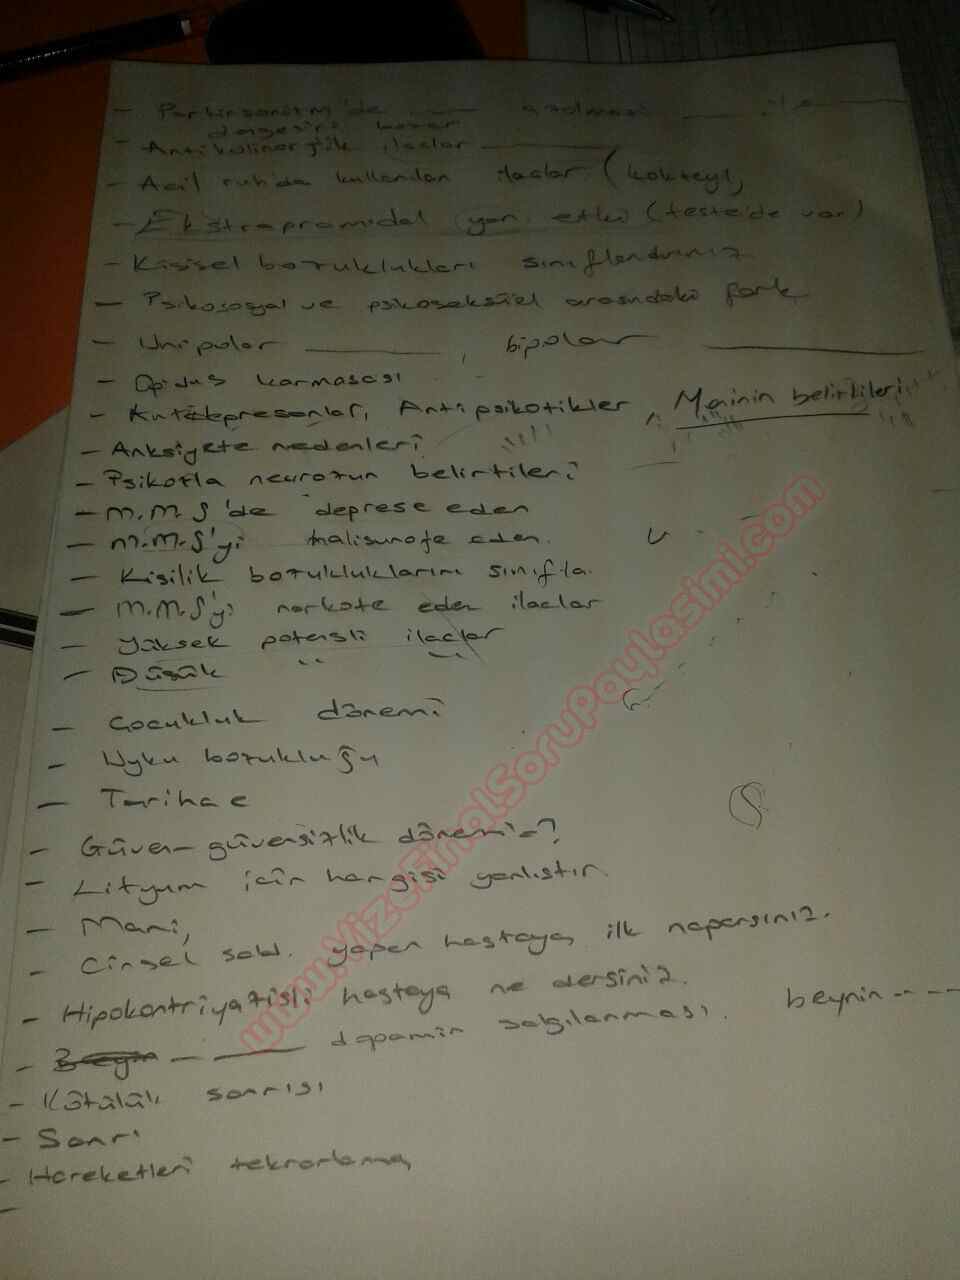 - Parkinsonizm'de ------ azalması
dengesini bozar
- Antikolinerjik ilaclar ------
- Acil ruh'da kullanılan ilaclar (kokteyl)
- Ekstrapramidal yan etki (testte'de var)
- Kisisel bozuklukları sınıflendırınız
- Psikososyal ve psikoseksüel arasındaki fark
- Unipolar ------, bipolar ------
- karmasası
- Antipsikotikler, Maninin belirtileri
- Anksiyete nedenleri
- Psikozla nevrozun belirtileri
- M.M.S'de deprese eden
- M.M.S'yi eden.
- Kisilik bozukluklarını sınıfla.
- M.M.S'yi narkote eden ilaclar
- Yüksek potensli ilaclar
- Düsük " "
- Cocukluk dönemi
- Uyku bozukluğu
- Tarihce
- Güven-güvensizlik dönemi-?
- Lityum icin hangisi yanlıstır.
- Mani,
- Cinsel sald. yapan hastaya ilk naparsınız.
- Hipokontriyazisli hastaya ne dersiniz.
- ------ dopamin salgılanması. beynin ----
- Kötülük sanrısı
- Sanrı
- Hareketleri tekrarlama
-
www.VizeFinalSoruPaylasimi.com